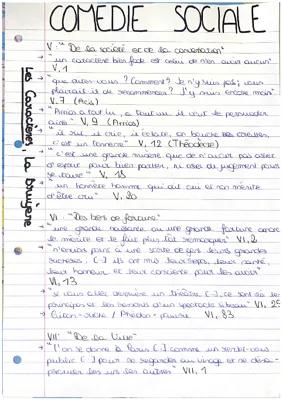 COMEDIE SOCIALE
Les Caractères La bruyère
V. "De la société et de la conversation"
→ "un caractère bien fade est celui de n'en avoir aucun"
V, 1
→ "que dites-vous ? Comment ? Je n'y suis pas ; vous
plairait-il de recommencer ? J'y suis encore moins"
V. 7 (Acis)
→ "Arrias a tout lu, a tout vu, il veut le persuader
ainsi" V, 9 (Arrias)
→ "il crie, il éclate,
c'est un tonnerre" V, 12 (Théodecte)
→ "c'est une grande misère que de n'avoir pas assez
d'esprit pour bien parler, ni assez de jugement pour
se taire" V, 18
→ un homme qui a un mérite
V, 20
VI. "Des biens de fortune"
→ "une grande naissance ou une grande fortune annonce
le mérite et le fait plus tôt remarquer" VI, 2
→ "n'envions point à une sorte de gens leurs grandes
richesses, (...) ils ont mis leur repos, leur santé,
leur honneur et leur conscience pour les avoir"
VI, 13
→ "si vous allez derrière un théâtre (...), ce sont
d'un spectacle si beau" VI, 25
→ Giton = riche / Phédon = pauvre VI, 83
VII "De la Ville"
→ "l'on se donne à Paris (...) comme un rendez-vous
public (...) pour se regarder au visage et se désa-
prouver les uns les autres" VII, 1